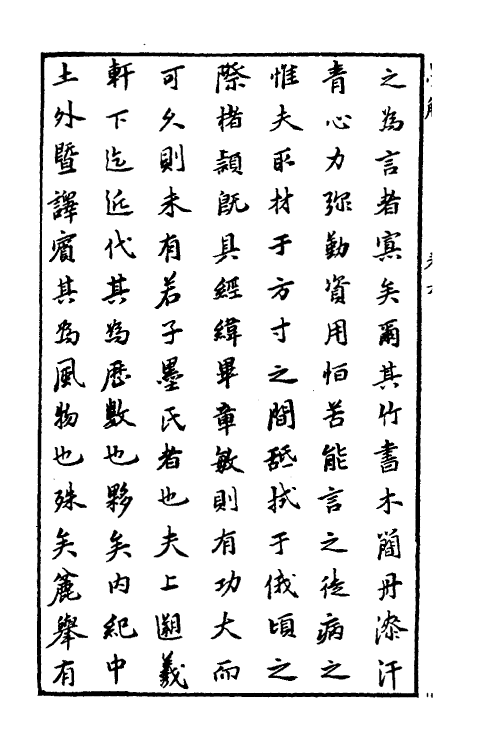 之為言者寘矣爾其竹書木簡丹漆汗
青心力弥勤資用怕苦能言之徒病之
惟夫取材于方寸之間舐拭于俄頃之
際楮頴既具經緯畢章敏則有功大而
可久則未有若子墨氏者也夫上遡羲
軒下迄近代其為歷數也夥矣内紀中
土外暨譯賓其為風物也殊矣麄舉有